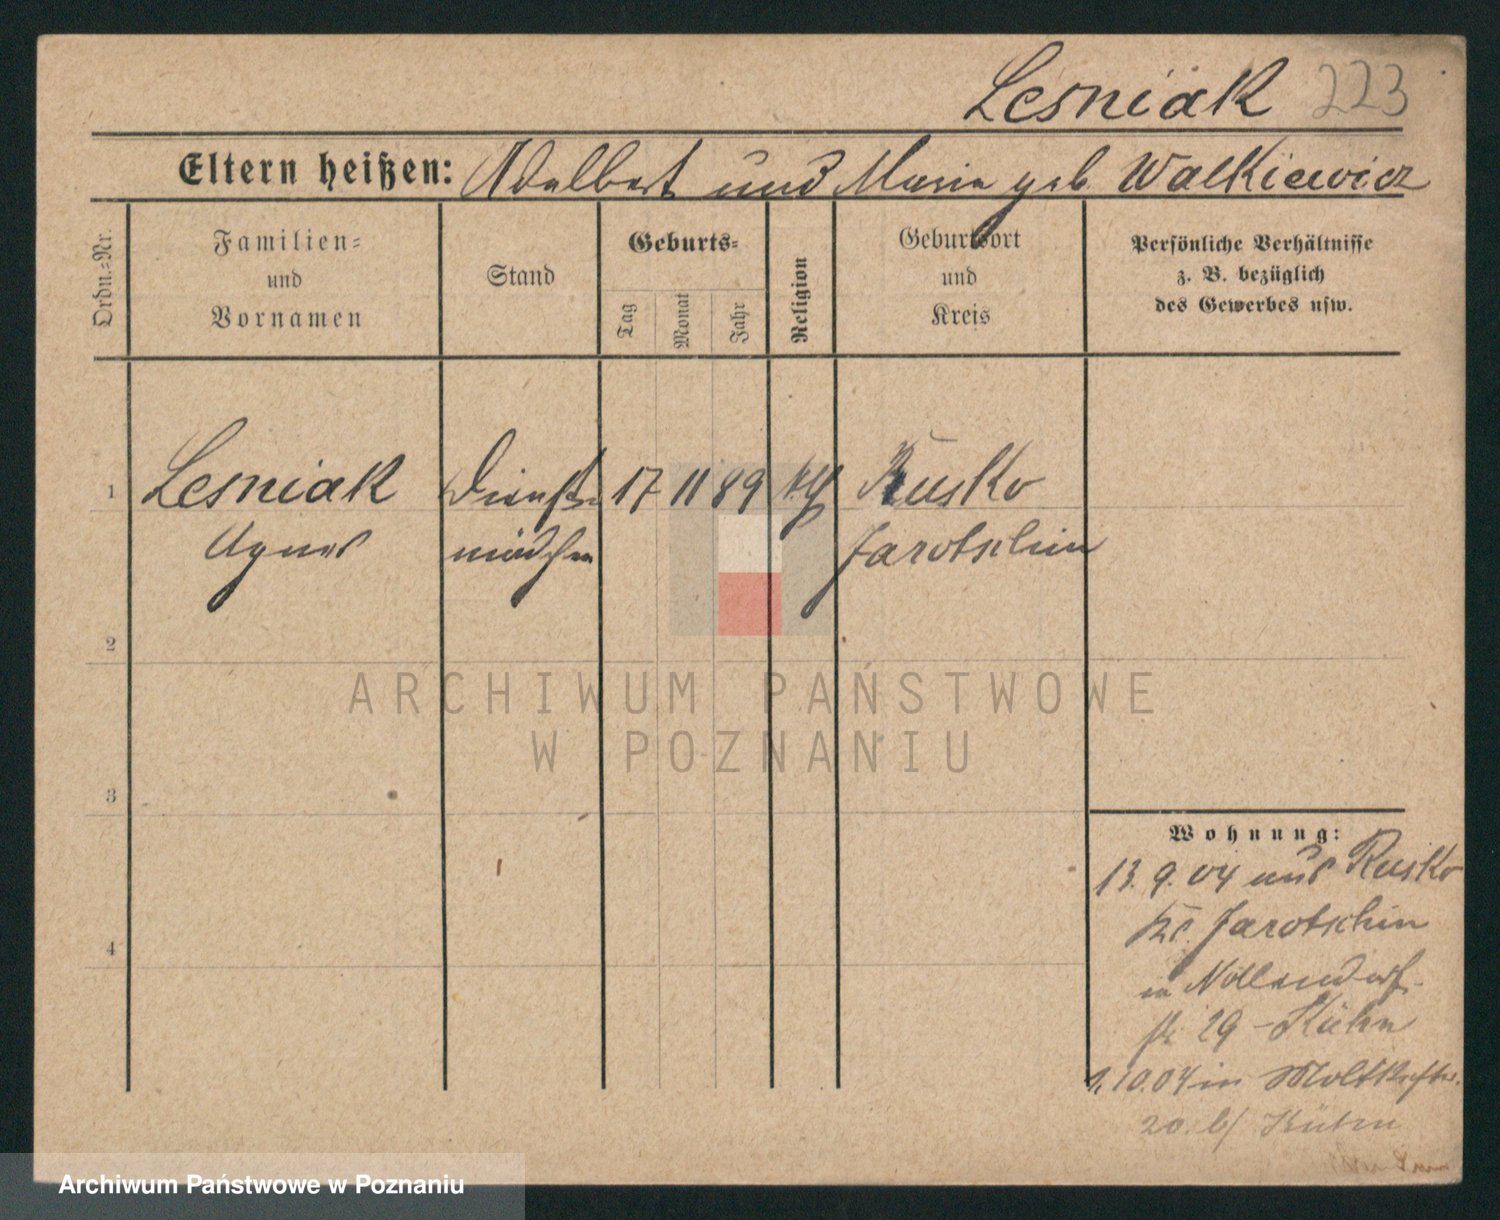 Lesniak 223
Eltern heißen: Adalbert und Marie geb Walkiewicz
Ordn.=Nr.
Familien=
und
Vornamen
Stand
Geburts=
Tag
Monat
Jahr
Religion
Geburtsort
und
Kreis
Persönliche Verhältnisse
z. B. bezüglich
des Gewerbes usw.
1 Lesniak Dienst= 17 11 89 kth Rusko
Agnes mädchen Jarotschin
2
3
4
ARCHIWUM PAŃSTWOWE
W POZNANIU
Wohnung:
13. 9. 04 aus Rusko
Kr. Jarotschin
in Nollendorf
str 29 - Kühn
1. 10. 04 in Moltkestr.
20. b/ Kühn
Archiwum Państwowe w Poznaniu